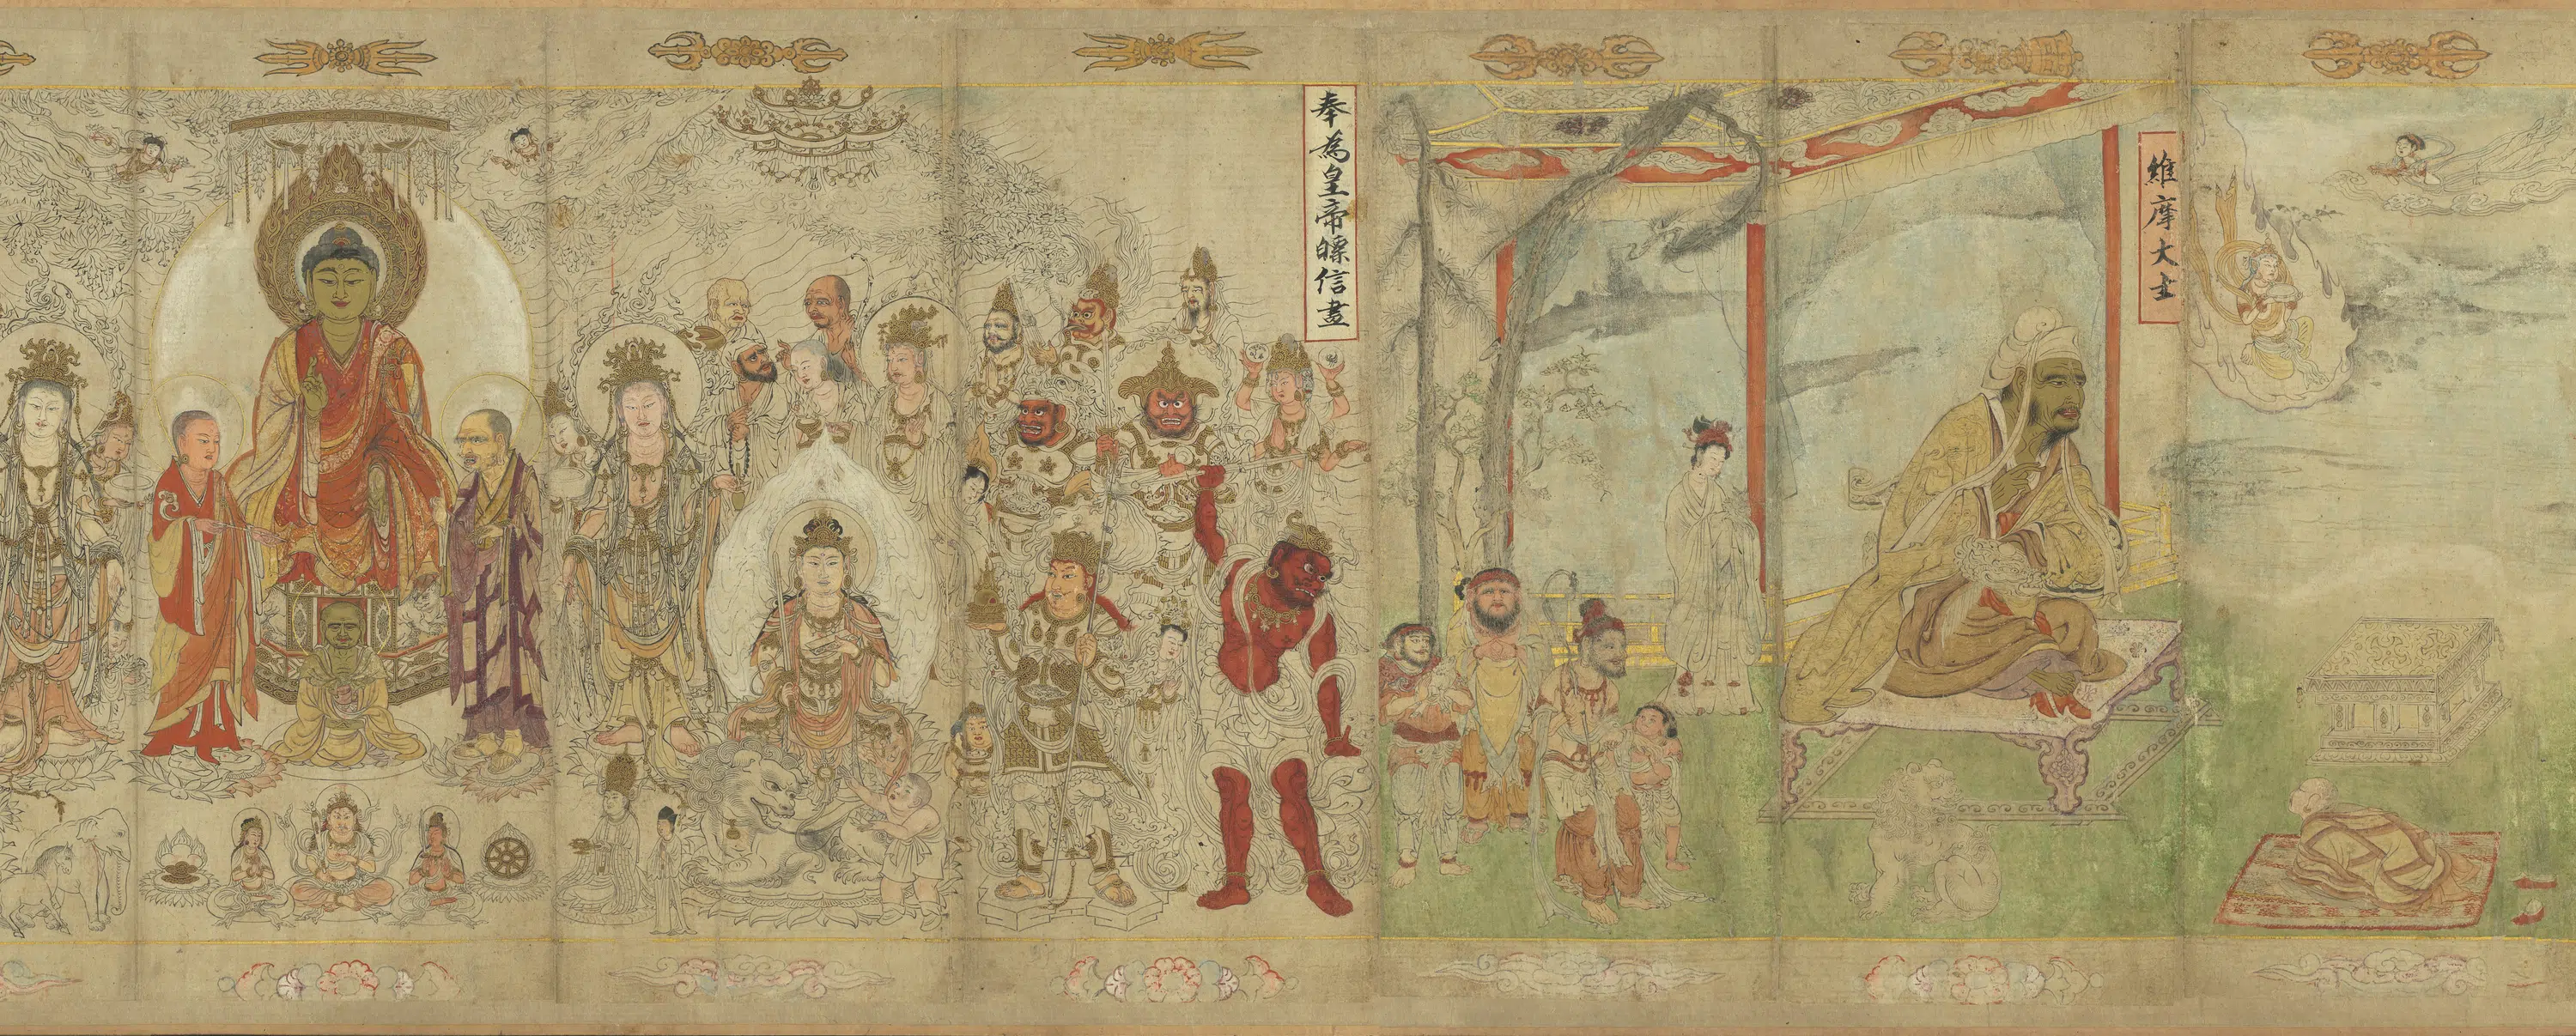 奉為皇帝驃信畫
維摩大士